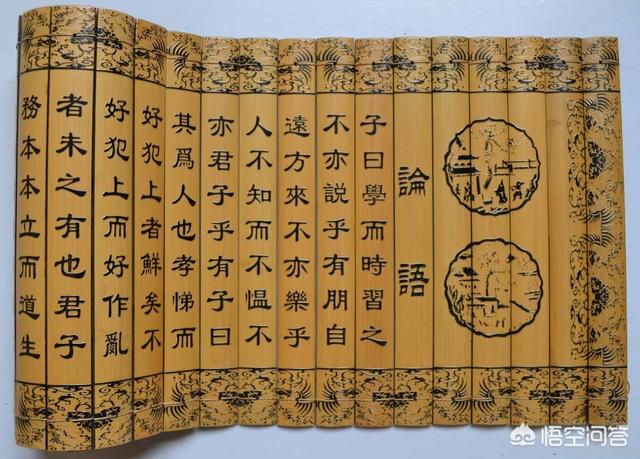 論語
子曰學而時習之
不亦説乎有朋自
遠方來不亦樂乎
人不知而不愠不
亦君子乎有子曰
其爲人也孝悌而
好犯上者鮮矣不
好犯上而好作亂
者未之有也君子
務本本立而道生
悟空问答